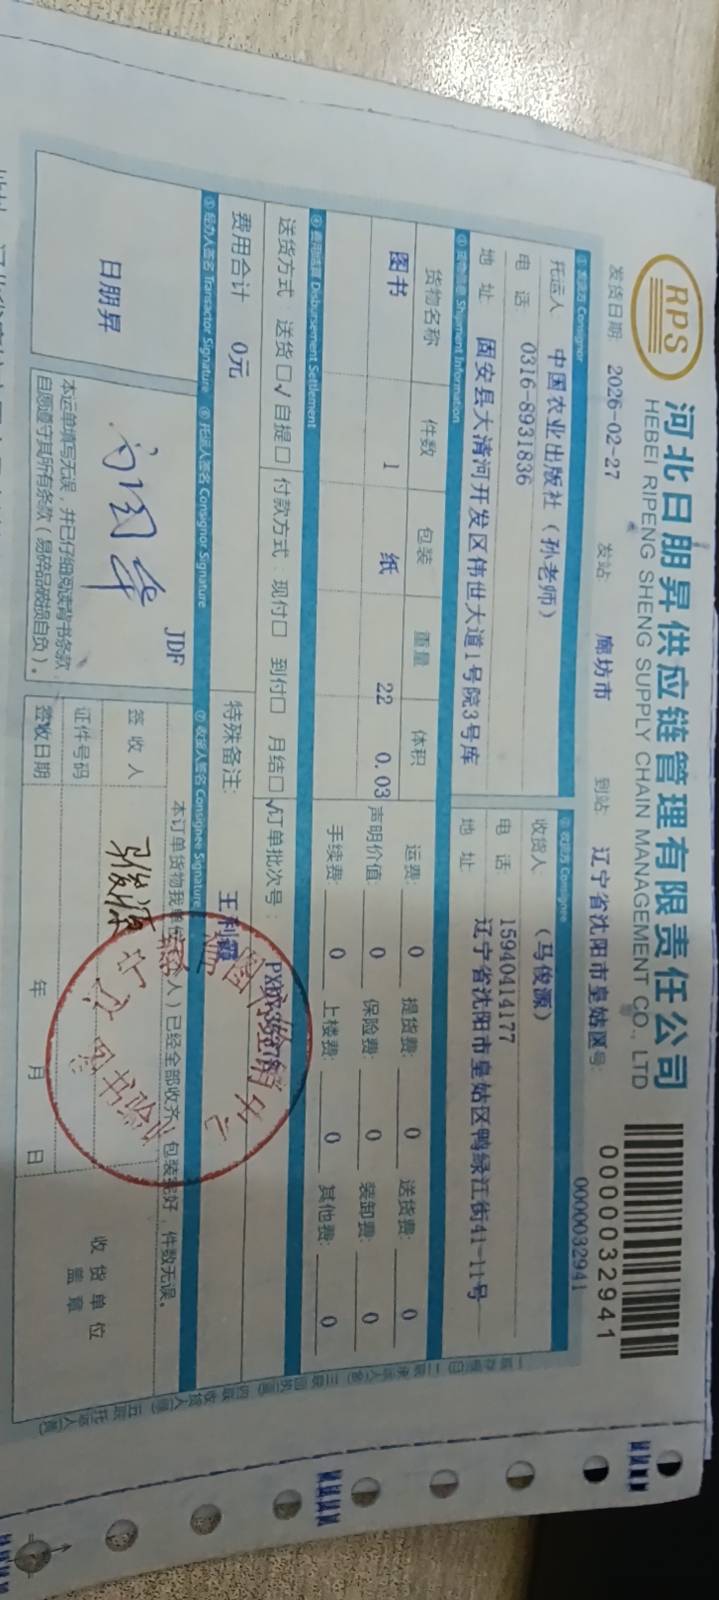 RPS
河北日朋昇供应链管理有限责任公司
HEBEI RIPENG SHENG SUPPLY CHAIN MANAGEMENT CO., LTD
0000032941
发货日期 2026-02-27 发站 廊坊市 到站 辽宁省沈阳市皇姑区 号: 0000032941
① 发货方 Consignor ② 收货方 Consignee
托运人 中国农业出版社（孙老师） 收货人 （马俊源）
电 话 0316-8931836 电 话 15940414177
地 址 固安县大清河开发区伟世大道1号院3号库 地 址 辽宁省沈阳市皇姑区鸭绿江街41-11号
③ 货物信息 Shipment Information
货物名称 件数 包装 重量 体积 运费: 0 提货费: 0 送货费: 0
图书 1 纸 22 0.03 声明价值: 0 保险费: 0 装卸费: 0
手续费: 0 上楼费: 0 其他费: 0
④ 费用结算 Disbursement Settlement
送货方式: 送货□√ 自提□ 付款方式: 现付□ 到付□ 月结□√ 订单批次号:
费用合计 0元 特殊备注: 王利霞
⑤ 经办人签名 Transactor Signature ⑥ 托运人签名 Consignor Signature ⑦ 收货人签名 Consignee Signature
日朋昇
JDF
本运单填写无误，并已仔细阅读背书条款
自愿遵守其所有条款（易碎品破损自负）。
本订单货物我单位（人）已经全部收齐，包装完好，件数无误。
签 收 人 马俊源
证件号码
签收日期 年 月 日
收 货 单 位
盖 章